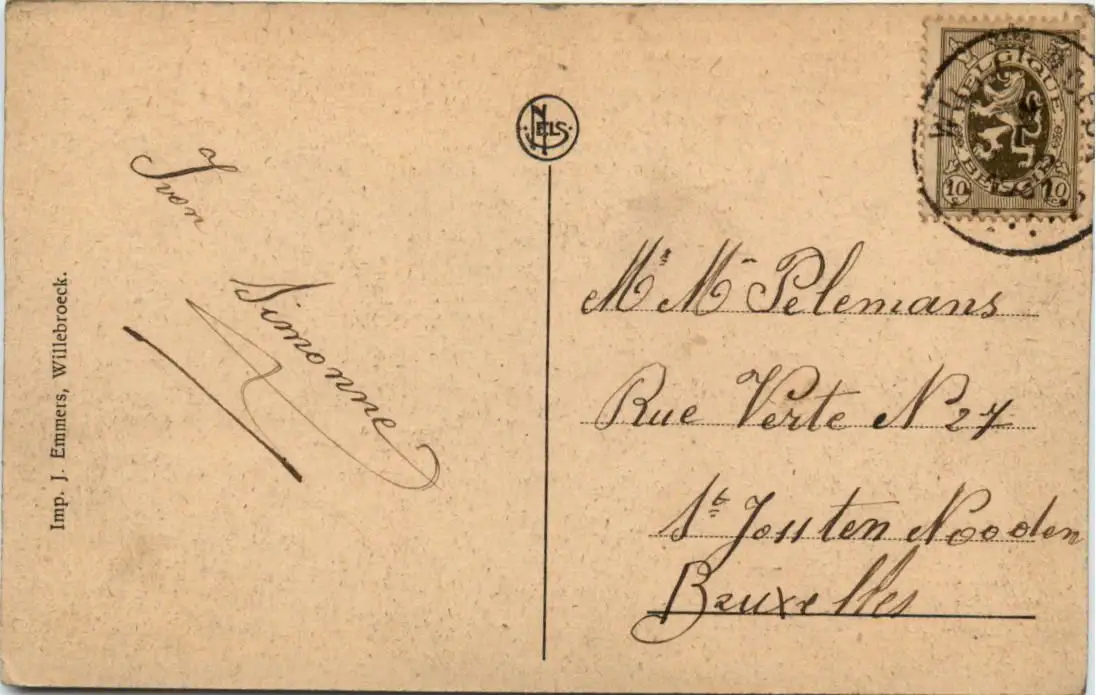 Imp. J. Emmers, Willebroeck.
Yvon
Simonne
NELS
BELGIQUE
BELGIE
10 10
Mr Mme Pelemans
Rue Verte N 27
St Josten Nooden
Bruxelles